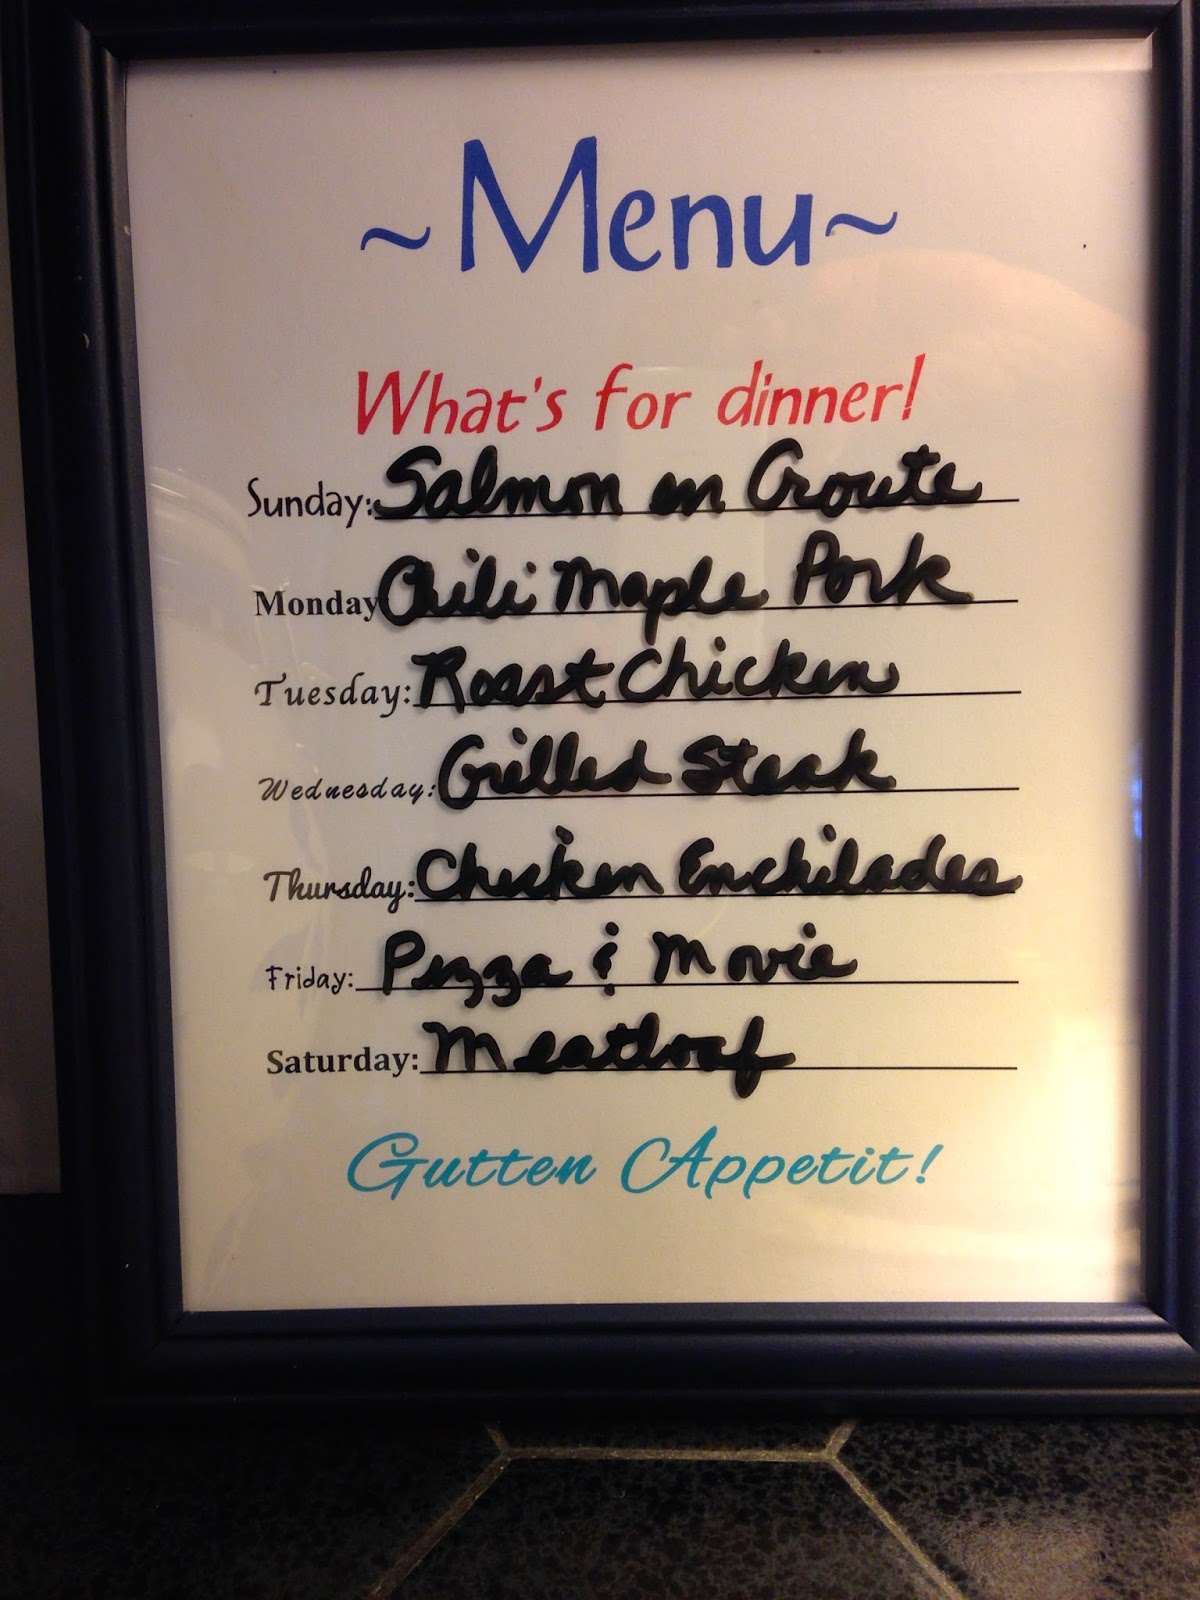 ~Menu~
What's for dinner!
Sunday: Salmon en Croute
Monday Chili Maple Pork
Tuesday: Roast Chicken
Wednesday: Grilled Steak
Thursday: Chicken Enchilades
Friday: Pizza & Movie
Saturday: Meatloaf
Gutten Appetit!